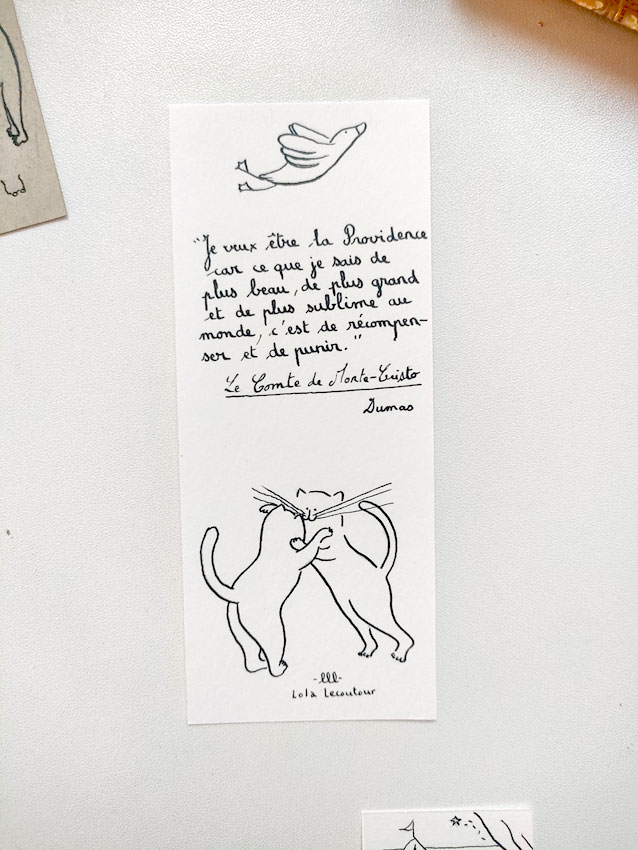 "Je veux être la Providence
car ce que je sais de
plus beau, de plus grand
et de plus sublime au
monde, c'est de récompen-
ser et de punir."
Le Comte de Monte-Cristo
Dumas
-lll-
Lola Lecoutour